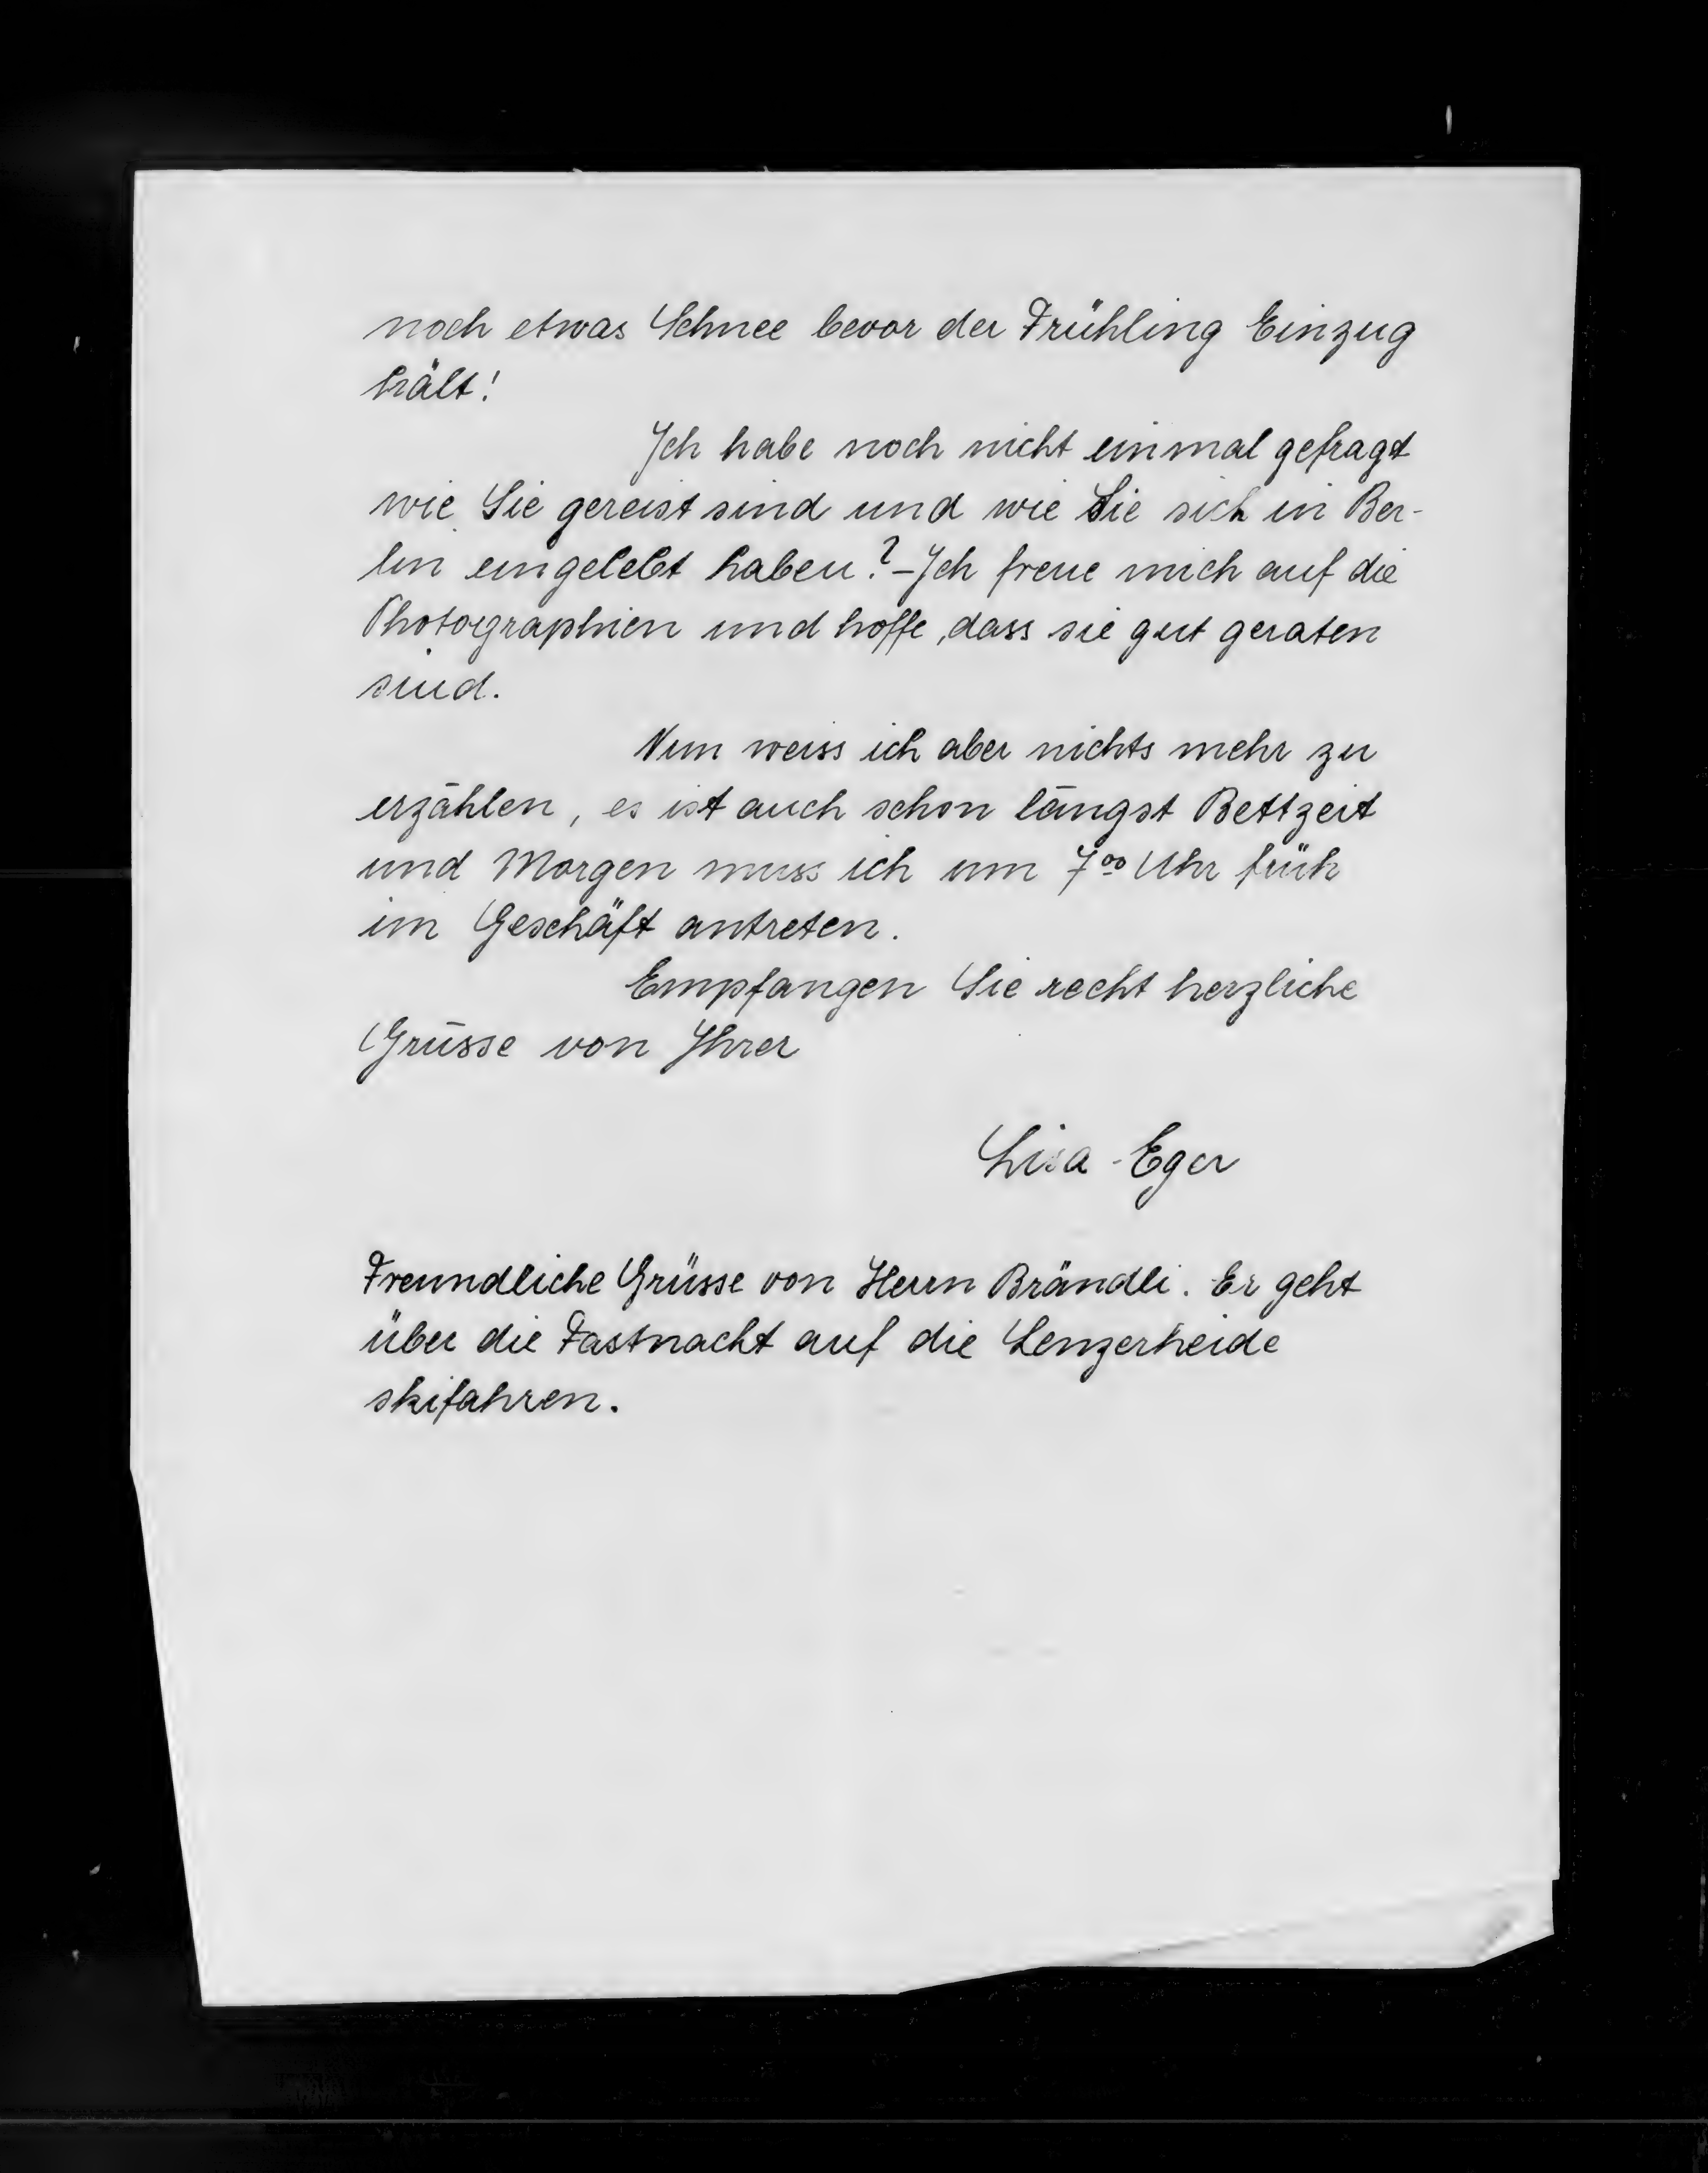 noch etwas Schnee bevor der Frühling Einzug
hält!
Ich habe noch nicht einmal gefragt
wie Sie gereist sind und wie Sie sich in Ber-
lin eingelebt haben? – Ich freue mich auf die
Photographien und hoffe, dass sie gut geraten
sind.
Nun weiss ich aber nichts mehr zu
erzählen, es ist auch schon längst Bettzeit
und Morgen muss ich um 7⁰⁰ Uhr früh
im Geschäft antreten.
Empfangen Sie recht herzliche
Grüsse von Ihrer
Lisa - Eger
Freundliche Grüsse von Herrn Brändli. Er geht
über die Fastnacht auf die Lenzerheide
skifahren.